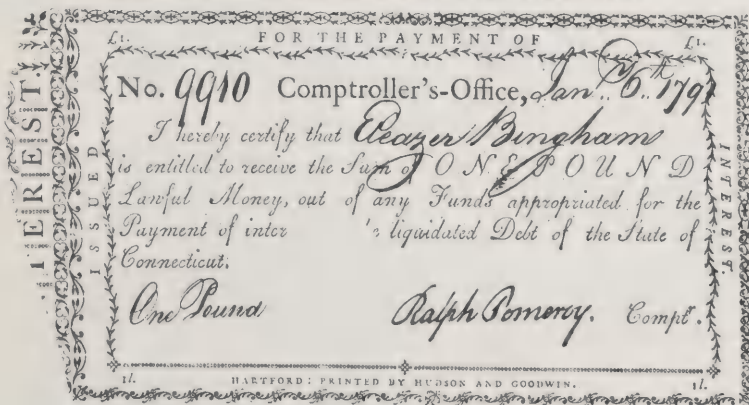 £1. FOR THE PAYMENT OF £1.
No. 9910 Comptroller's-Office, Jan. 6th 179
I hereby certify that Eleazer Bingham
is entitled to receive the Sum of ONE POUND
Lawful Money, out of any Funds appropriated for the
Payment of inter 's liquidated Debt of the State of
Connecticut.
One Pound Ralph Pomeroy. Comptr.
1l. HARTFORD: PRINTED BY HUDSON AND GOODWIN. 1l.
ISSUED
INTEREST.
TEREST.